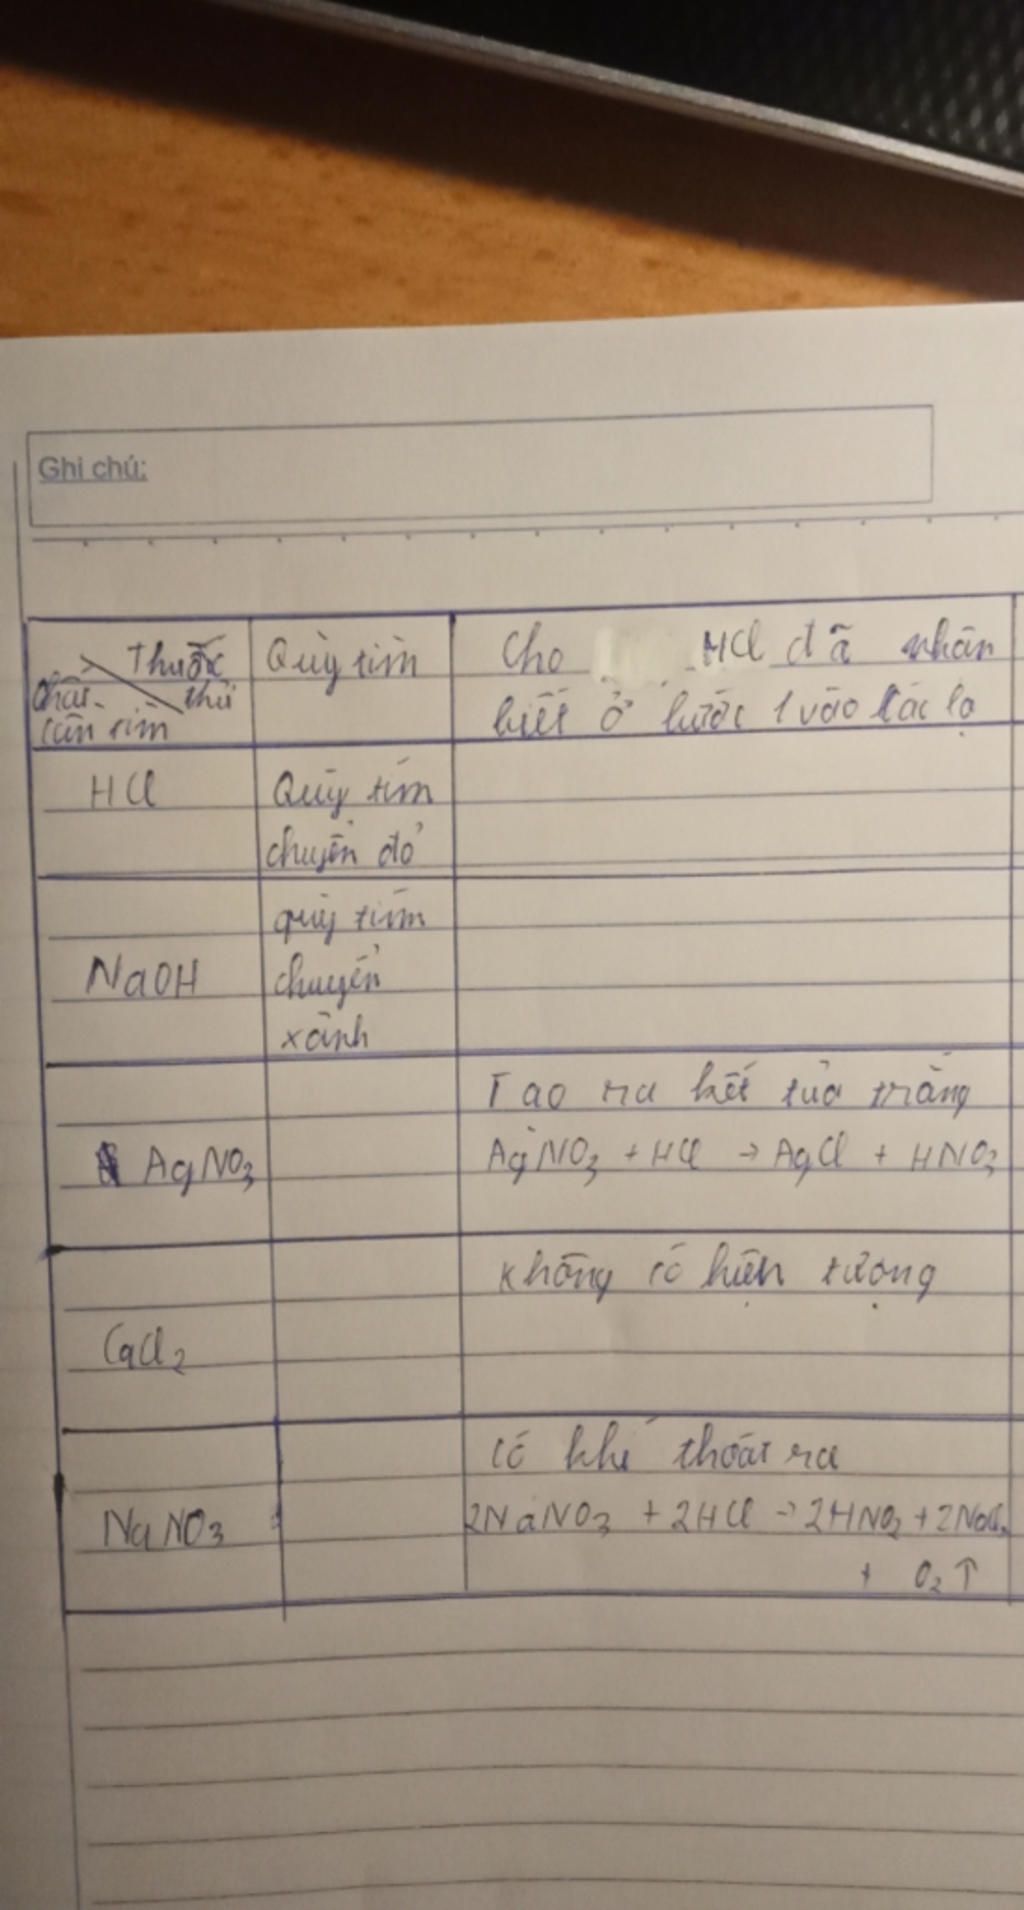 Ghi chú:
Thuốc thử
Chất cần tìm
Quỳ tím
Cho HCl đã nhận
biết ở bước 1 vào các lọ
HCl
Quỳ tím
chuyển đỏ
NaOH
quỳ tím
chuyển
xanh
AgNO3
Tạo ra kết tủa trắng
AgNO3 + HCl → AgCl + HNO3
CaCl2
Không có hiện tượng
NaNO3
Có khí thoát ra
2NaNO3 + 2HCl → 2HNO2 + 2NaCl
+ O2 ↑